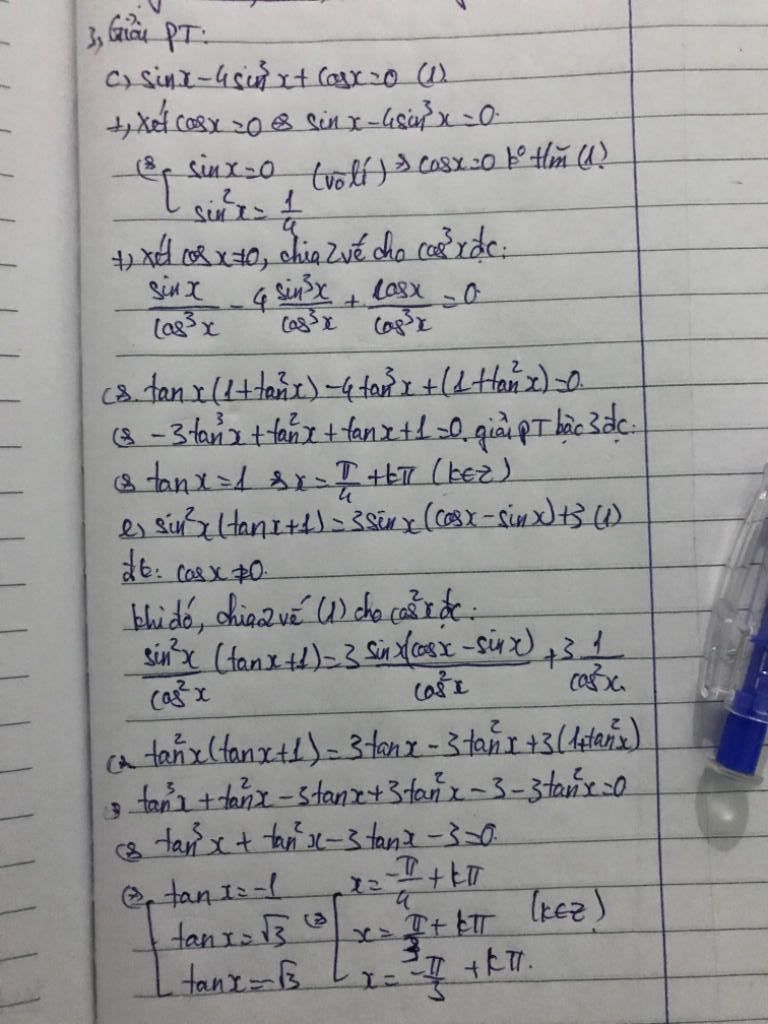 3, Giải PT:
c, sinx - 4sin³x + cosx = 0 (1)
+, xét cosx = 0 ⇔ sinx - 4sin³x = 0.
⇔ [ sinx = 0 (vô lí) ⇒ cosx = 0 k° t/m (1)
sin²x = 1/4
+, xét cosx ≠ 0, chia 2 vế cho cos³x đc:
sinx/cos³x - 4 sin³x/cos³x + cosx/cos³x = 0
⇔ tanx(1+tan²x) - 4tan³x + (1+tan²x) = 0
⇔ -3tan³x + tan²x + tanx + 1 = 0. giải PT bậc 3 đc:
⇔ tanx = 1 ⇔ x = π/4 + kπ (k∈Z)
e, sin²x(tanx+1) = 3sinx(cosx - sinx) + 3 (1)
đk: cosx ≠ 0.
khi đó, chia 2 vế (1) cho cos²x đc:
sin²x/cos²x (tanx+1) = 3 sinx(cosx - sinx)/cos²x + 3 1/cos²x.
⇔ tan²x(tanx+1) = 3tanx - 3tan²x + 3(1+tan²x)
⇔ tan³x + tan²x - 3tanx + 3tan²x - 3 - 3tan²x = 0
⇔ tan³x + tan²x - 3tanx - 3 = 0.
⇔ [ tanx = -1 ⇔ [ x = -π/4 + kπ
tanx = √3 x = π/3 + kπ (k∈Z)
tanx = -√3 x = -π/3 + kπ.